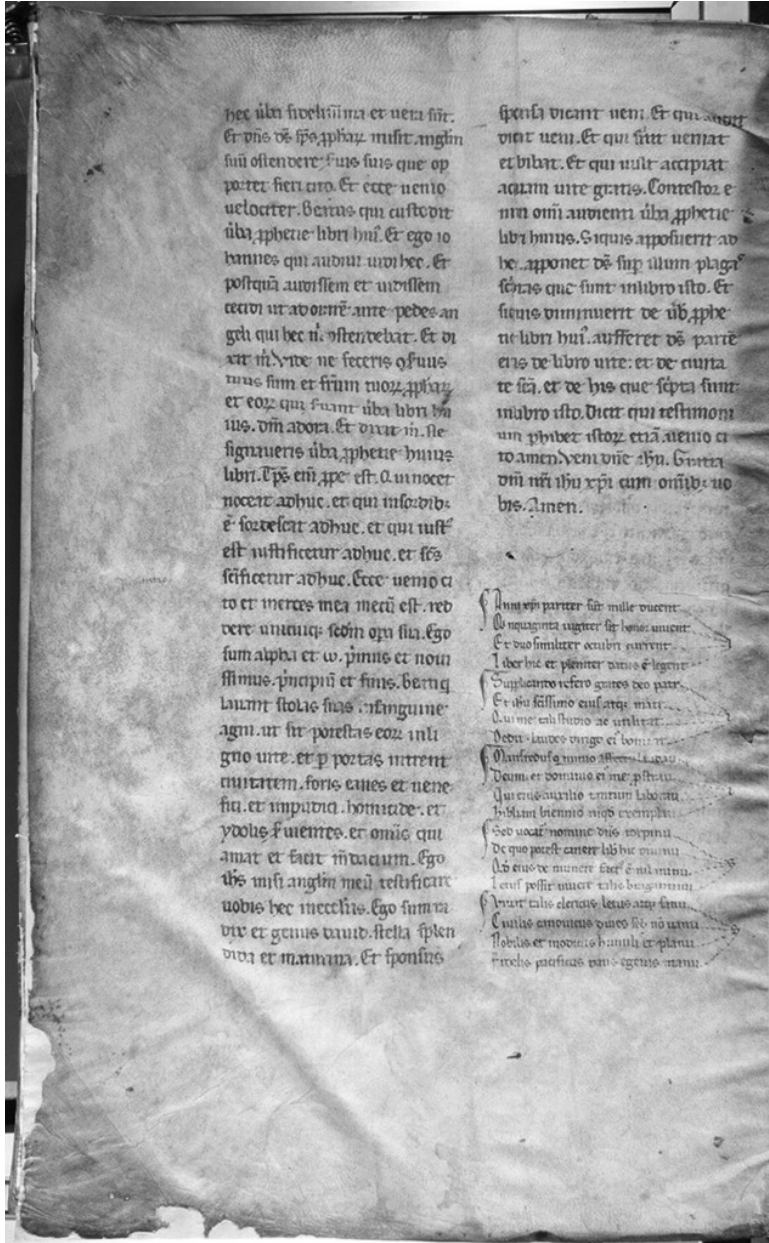 hec uba fidelissima et uera sūt.
Et dn̄s dē sp̄s ꝓphaꝝ misit anglm̄
suū ostendere suis suis que op
portet fieri cito. Et ecce uenio
uelociter. Beatus qui custodit
ūba ꝓphetie libri huiꝰ. Et ego io
hannes qui audiui uidi hec. Et
postquā audissem et uidissem
cecidi ut adorarē ante pedes an
geli qui hec m̄ ostendebat. Et di
xit m̄. Vide ne feceris qͣ suus
tuus sum et frūm tuoꝝ ꝓphaꝝ
et eoꝝ qui suant ūba libri hu
ius. dm̄ adora. Et dixit m̄. Ne
signaueris ūba ꝓphetie huius
libri. Tp̄s em̄ ꝓpe est. Qui nocet
noceat adhuc. et qui in sordibꝫ
ē sordescat adhuc. et qui iustꝰ
est iustificetur adhuc. et sc̄s
sc̄ificetur adhuc. Ecce uenio ci
to et merces mea mecū est. red
dere unicuiqꝫ scdm oꝑa sua. Ego
sum alpha et ω. pͥmus et noui
ssimus. pͥncipiū et finis. Beati q
lauant stolas suas in sanguine
agni. ut sit potestas eoꝝ in li
gno uite. et ꝑ portas intrent
ciuitatem. foris canes et uene
fici. et impudici. homicide. et
ydolis s̄uientes. et om̄is qui
amat et facit m̄dacium. Ego
ihs misi anglm̄ meū testificare
uobis hec in ecclīis. Ego sum ra
dix et genus dauid. stella splen
dida et matutina. Et sponsus
sponsa dicant ueni. Et qui audit
dicat ueni. Et qui sitit ueniat
et bibat. Et qui uult accipiat
aquam uite gratis. Contestor e
nim omī audienti ūba ꝓphetie
libri huius. Siquis apposuerit ad
hec apponet dē suꝑ illum plagaˢ
sc̄ptas que sunt in libro isto. Et
siquis diminuerit de ūb̄ ꝓphe
tie libri huiꝰ. aufferet dē partē
eius de libro uite: et de ciuita
te sc̄a. et de his que sc̄pta sunt
in libro isto. Dicit qui testimoni
um ꝑhibet istoꝝ etiā. uenio ci
to amen. Veni dn̄e ihu. Gratia
dn̄i nr̄i ihu xp̄i cum om̄ibꝫ uo
bis. Amen.
Anni xp̄i pariter sūt mille ducent
Quinquaginta iugiter sit honor uiuent
Et duo similiter octubri current
Liber hic et pleniter datus ē legent
Supplicando refero grates deo patr
Et ihu sc̄issimo eiusqꝫ matri
Qui me tali studio ac utilitat
Dedit laudes uirgo ei
Manfredus
Deum et dominio ei me
Qui eius auxilio laboraui
Bibliam biennio
Sed uocat nomine dn̄s
De quo potest canere lib̄ hic
Qd̄ eius de munere factꝰ ē
Letus possit uiuere talis
Viuat talis clericus letus atqꝫ sanu
Ciuilis canonicus diues sed nō uanu
Nobilis et modicus humili et planu
Fidelis pacificus dans egenis manu